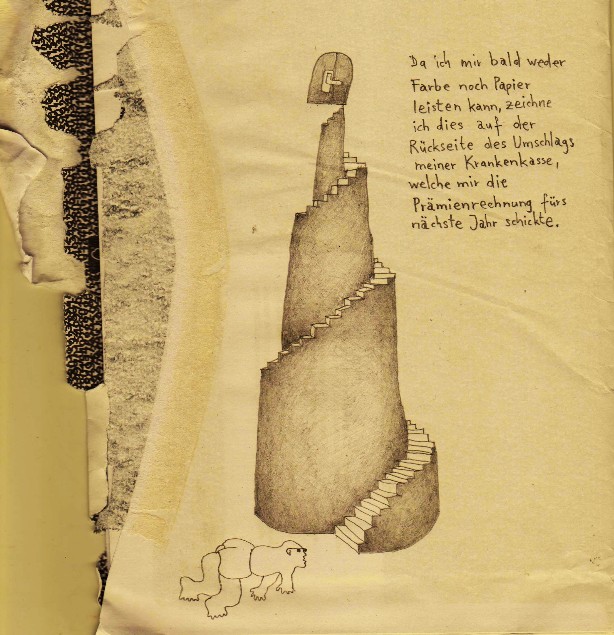 Da ich mir bald weder
Farbe noch Papier
leisten kann, zeichne
ich dies auf der
Rückseite des Umschlags
meiner Krankenkasse,
welche mir die
Prämienrechnung fürs
nächste Jahr schickte.